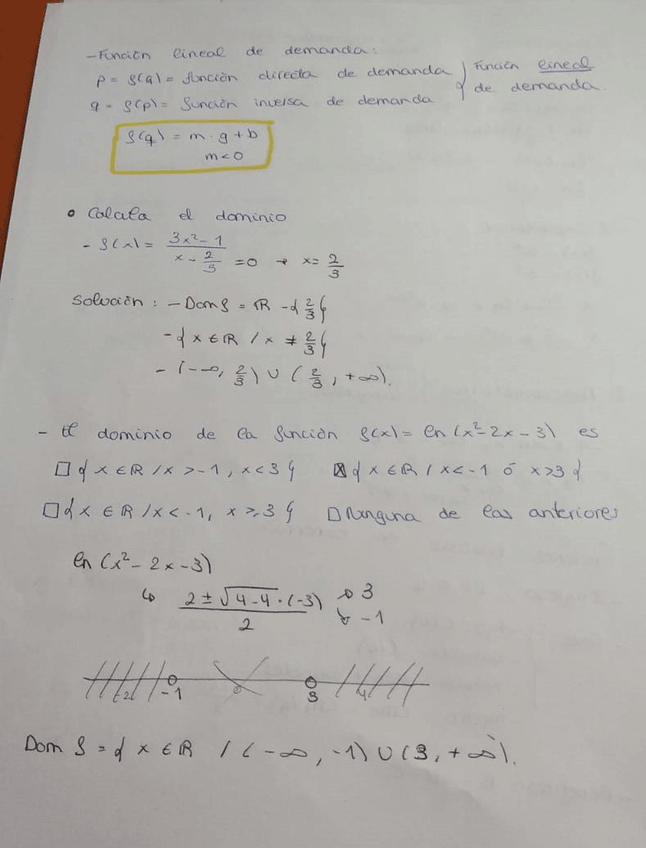 - Función lineal de demanda:
p = f(q) = función directa de demanda } Función lineal
q = f(p) = función inversa de demanda } de demanda.
f(q) = m · q + b
m < 0
• Calcula el dominio
- f(x) = 3x² - 1 / x - 2/3 = 0 → x = 2/3
Solución: - Dom f = ℝ - { 2/3 }
- { x ∈ ℝ / x ≠ 2/3 }
- (-∞, 2/3) ∪ (2/3, +∞).
- El dominio de la función f(x) = ln (x² - 2x - 3) es
☐ { x ∈ ℝ / x > -1, x < 3 } ☒ { x ∈ ℝ / x < -1 ó x > 3 }
☐ { x ∈ ℝ / x < -1, x ≥ 3 } ☐ Ninguna de las anteriores
ln (x² - 2x - 3)
↳ 2 ± √4 - 4 · (-3) / 2 ↗ 3 ↘ -1
-2 -1 0 3 4
Dom f = { x ∈ ℝ / (-∞, -1) ∪ (3, +∞).